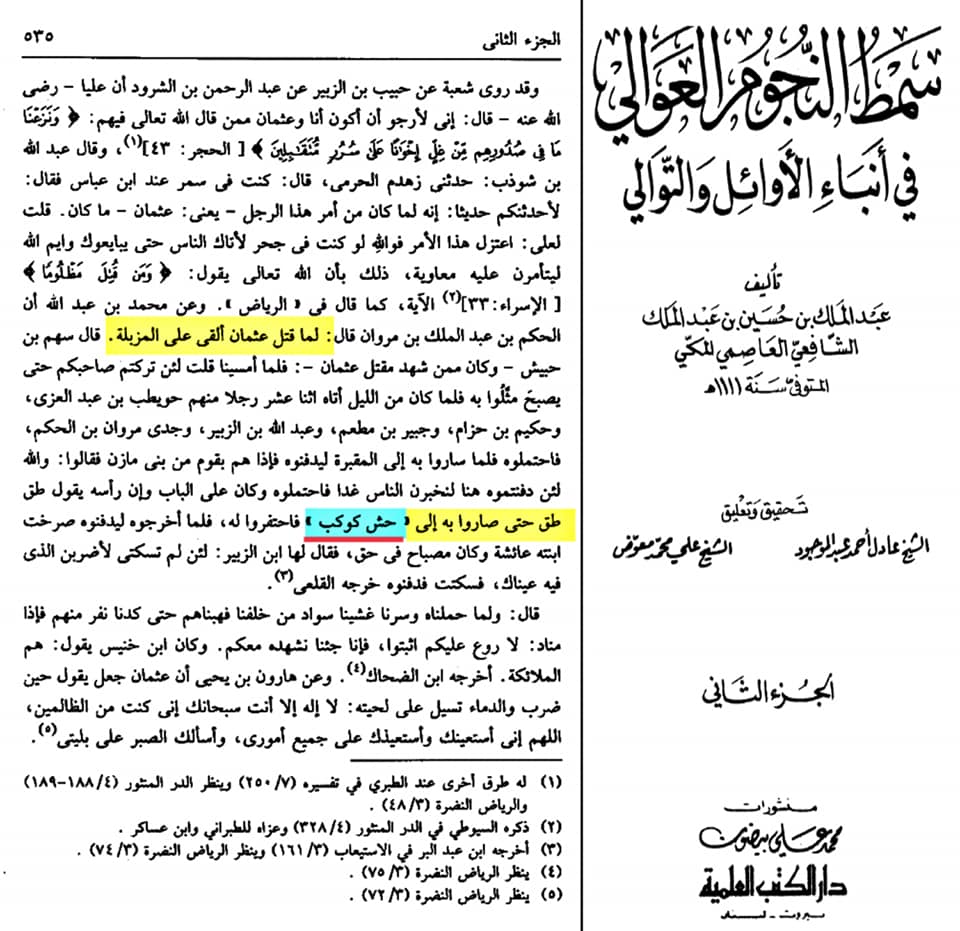 سمط النجوم العوالي
في أنباء الأوائل والتوالي
تأليف
عبد الملك بن حسين بن عبد الملك
الشافعي العاصمي المكي
المتوفى سنة ١١١١هـ
تحقيق وتعليق
الشيخ عادل أحمد عبد الموجود الشيخ علي محمد معوض
الجزء الثاني
منشورات
محمد علي بيضون
دار الكتب العلمية
بيروت - لبنان
الجزء الثانى ٥٣٥
وقد روى شعبة عن حبيب بن الزبير عن عبد الرحمن بن الشرود أن عليا – رضى
الله عنه – قال: إنى لأرجو أن أكون أنا وعثمان ممن قال الله تعالى فيهم: ﴿ وَنَزَعْنَا
مَا فِى صُدُورِهِم مِّنْ غِلٍّ إِخْوَٰنًا عَلَىٰ سُرُرٍ مُّتَقَٰبِلِينَ ﴾ [الحجر: ٤٣](١)، وقال عبد الله
بن شوذب: حدثنى زهدم الحرمى، قال: كنت فى سمر عند ابن عباس فقال:
لأحدثنكم حديثا: إنه لما كان من أمر هذا الرجل – يعنى: عثمان – ما كان. قلت
لعلى: اعتزل هذا الأمر فوالله لو كنت فى جحر لأتاك الناس حتى يبايعوك وايم الله
ليتأمرن عليه معاوية، ذلك بأن الله تعالى يقول: ﴿ وَمَن قُتِلَ مَظْلُومًا ﴾
[الإسراء: ٣٣](٢) الآية، كما قال فى «الرياض». وعن محمد بن عبد الله أن
الحكم بن عبد الملك بن مروان قال: لما قتل عثمان ألقى على المزبلة. قال سهم بن
حبيش – وكان ممن شهد مقتل عثمان –: فلما أمسينا قلت لئن تركتم صاحبكم حتى
يصبحَ مثَّلُوا به فلما كان من الليل أتاه اثنا عشر رجلا منهم حويطب بن عبد العزى،
وحكيم بن حزام، وجبير بن مطعم، وعبد الله بن الزبير، وجدى مروان بن الحكم،
فاحتملوه فلما ساروا به إلى المقبرة ليدفنوه فإذا هم بقوم من بنى مازن فقالوا: والله
لئن دفنتموه هنا لنخبرن الناس غدا فاحتملوه وكان على الباب وإن رأسه يقول طق
طق حتى صاروا به إلى «حش كوكب» فاحتفروا له، فلما أخرجوه ليدفنوه صرخت
ابنته عائشة وكان مصباح فى حق، فقال لها ابن الزبير: لئن لم تسكتى لأضربن الذى
فيه عيناك، فسكتت فدفنوه خرجه القلعى(٣).
قال: ولما حملناه وسرنا غشينا سواد من خلفنا فهبناهم حتى كدنا نفر منهم فإذا
مناد: لا روع عليكم اثبتوا، فإنا جئنا نشهده معكم. وكان ابن خنيس يقول: هم
الملائكة. أخرجه ابن الضحاك(٤). وعن هارون بن يحيى أن عثمان جعل يقول حين
ضرب والدماء تسيل على لحيته: لا إله إلا أنت سبحانك إنى كنت من الظالمين،
اللهم إنى أستعينك وأستعيذك على جميع أمورى، وأسألك الصبر على بليتى(٥).
(١) له طرق أخرى عند الطبري في تفسيره (٧/ ٢٥٠) وينظر الدر المنثور (٤/ ١٨٨-١٨٩)
والرياض النضرة (٣/ ٤٨).
(٢) ذكره السيوطي في الدر المنثور (٤/ ٣٢٨) وعزاه للطبراني وابن عساكر.
(٣) أخرجه ابن عبد البر في الاستيعاب (٣/ ١٦١) وينظر الرياض النضرة (٣/ ٧٤).
(٤) ينظر الرياض النضرة (٣/ ٧٥).
(٥) ينظر الرياض النضرة (٣/ ٧٢).